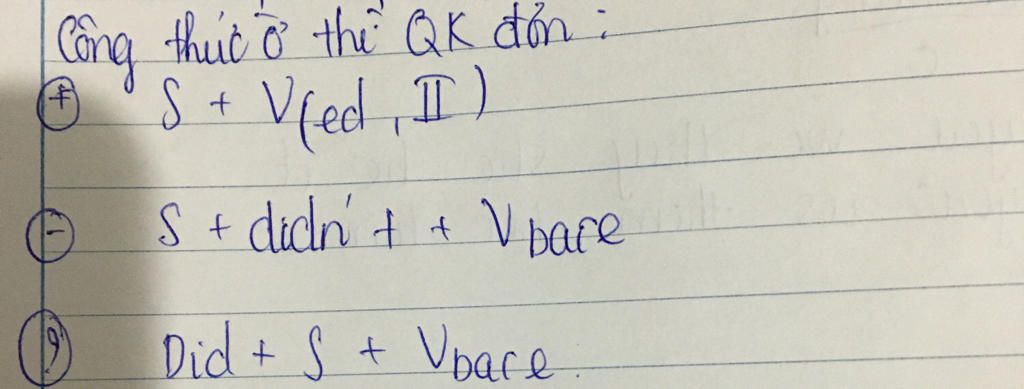 Công thức ở thì QK đơn :
(+) S + V(ed, II)
(-) S + didn't + Vbare
(?) Did + S + Vbare.